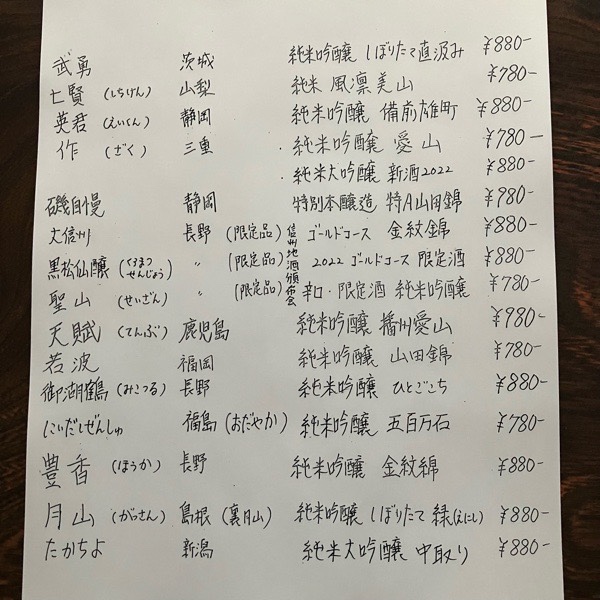 武勇 茨城 純米吟醸 しぼりたて直汲み ¥880-
七賢 (しちけん) 山梨 純米 風凛美山 ¥780-
英君 (えいくん) 静岡 純米吟醸 備前雄町 ¥880-
作 (ざく) 三重 ・純米吟醸 愛山 ¥780-
・純米大吟醸 新酒2022 ¥880-
磯自慢 静岡 特別本醸造 特A山田錦 ¥980-
大信州 長野 (限定品) 信州地酒頒布会 ゴールドコース 金紋錦 ¥880-
黒松仙醸 (くろまつせんじょう) 〃 (限定品) 2022 ゴールドコース 限定酒 ¥880-
聖山 (せいざん) 〃 (限定品) 辛口・限定酒 純米吟醸 ¥780-
天賦 (てんぶ) 鹿児島 純米吟醸 播州愛山 ¥980-
若波 福岡 純米吟醸 山田錦 ¥780-
御湖鶴 (みこつる) 長野 純米吟醸 ひとごこち ¥880-
にいだしぜんしゅ 福島 (おだやか) 純米吟醸 五百万石 ¥780-
豊香 (ほうか) 長野 純米吟醸 金紋綿 ¥880-
月山 (がっさん) 島根 (裏月山) 純米吟醸 しぼりたて 縁(えにし) ¥880-
たかちよ 新潟 純米大吟醸 中取り ¥880-